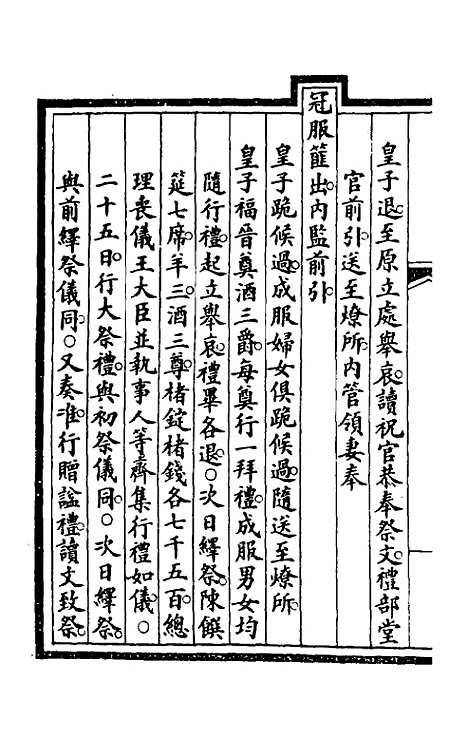 皇子退至原立處舉哀讀祝官恭奉祭文禮部堂
官前引送至燎所內管領妻奉
冠服䈰出內監前引
皇子跪候過成服婦女俱跪候過隨送至燎所
皇子福晉奠酒三爵每奠行一拜禮成服男女均
隨行禮起立舉哀禮畢各退○次日繹祭陳饌
筵七席羊三酒三尊楮錠楮錢各七千五百總
理喪儀王大臣並執事人等齊集行禮如儀○
二十五日行大祭禮與初祭儀同○次日繹祭
與前繹祭儀同○又奏准行贈諡禮讀文致祭